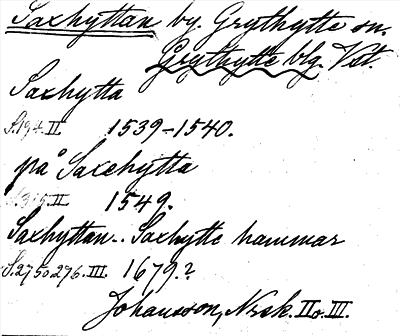 Saxhyttan by. Grythytte sn.
Grythytte blg. Vstl.
Saxhytta
S. 194. II 1539-1540.
på Saxehytta
S. 315. II 1549.
Saxhyttan.. Saxhytte hammar
S. 275 o 276. III. 1679.?
Johansson, Nrsk. II o. III.